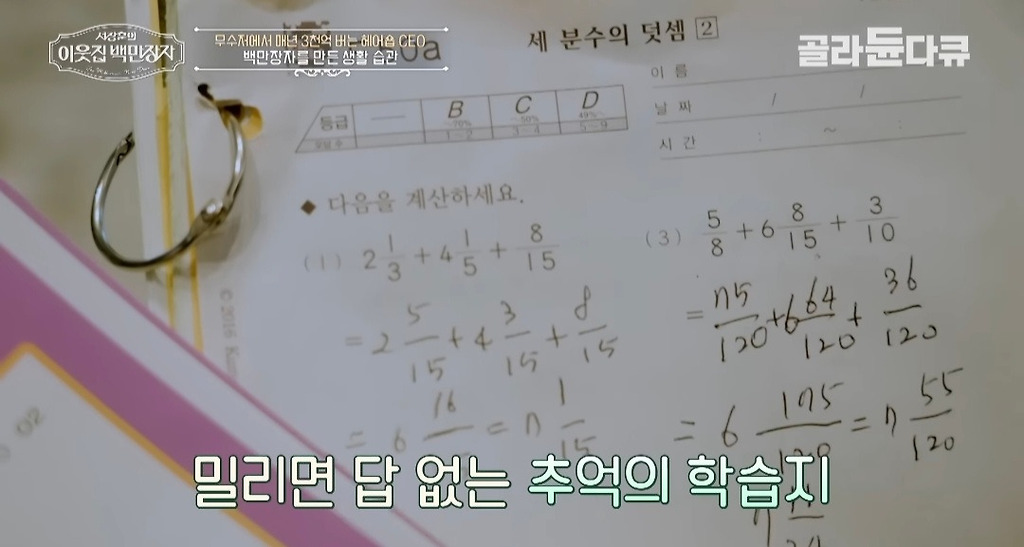 서장훈의
이웃집 백만장자
무수저에서 매년 3천억 버는 헤어숍 CEO
백만장자를 만든 생활 습관
골라듄다큐
0a
세 분수의 덧셈 2
이 름
날 짜 / /
시 간 : ~ :
등급 B C D
~70% ~50% 49%~
오답수 1~2 3~4 5~9
◆ 다음을 계산하세요.
(1) 2 1/3 + 4 1/5 + 8/15
= 2 5/15 + 4 3/15 + 8/15
= 6 16/ = 7 1/15
(3) 5/8 + 6 8/15 + 3/10
= 75/120 + 6 64/120 + 36/120
= 6 175/120 = 7 55/120
© 2016
밀리면 답 없는 추억의 학습지